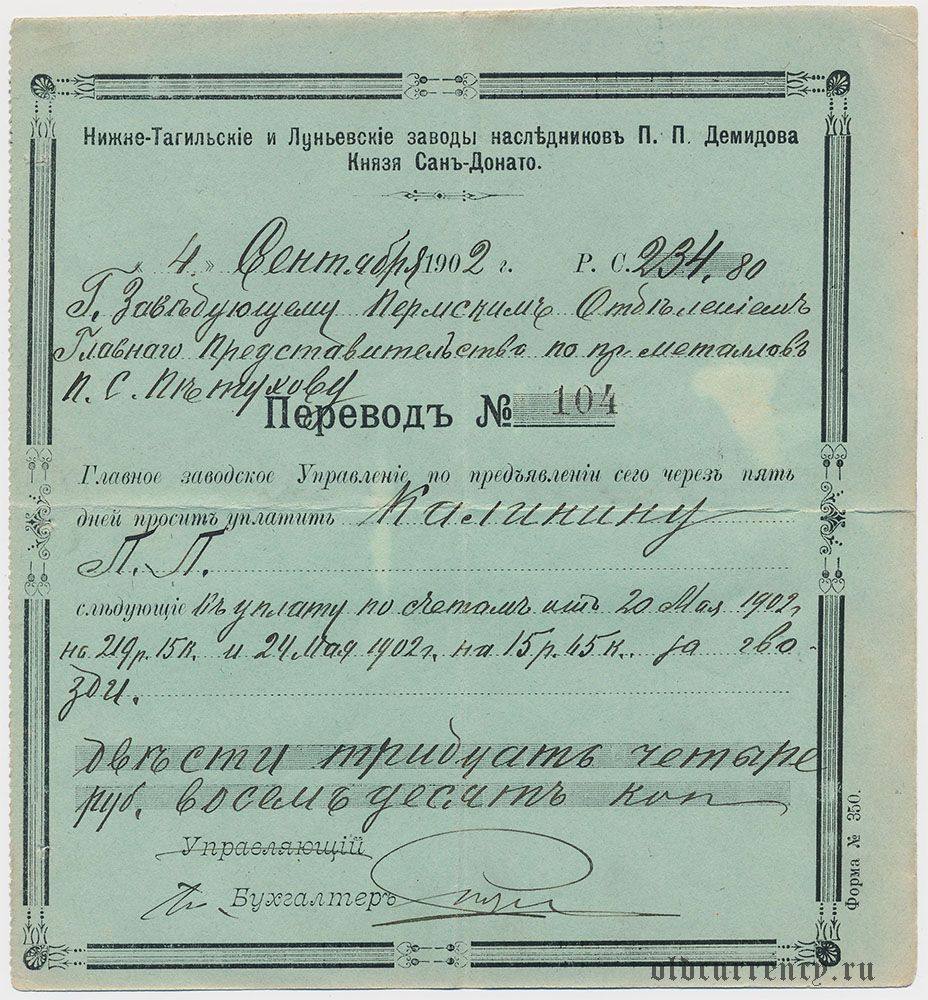 Нижне-Тагильскіе и Луньевскіе заводы наслѣдниковъ П. П. Демидова
Князя Санъ-Донато.
„ 4 „ Сентября 1902 г. Р. С. 234. 80
Г. Завѣдующему Пермскимъ Отдѣленіемъ
Главнаго Представительства по пр. металловъ
П. С. Пѣтухову
Переводъ № 104
Главное заводское Управленіе по предъявленіи сего черезъ пять
дней проситъ уплатить Калинину
П. П.
слѣдующіе въ уплату по счетамъ отъ 20 Мая 1902 г
на 219 р. 15 к. и 24 Мая 1902 г. на 15 р. 65 к. за гво-
зди.
двѣсти тридцать четыре
руб. восемьдесятъ коп
Управляющій
Бухгалтеръ
Форма № 350.
oldcurrency.ru